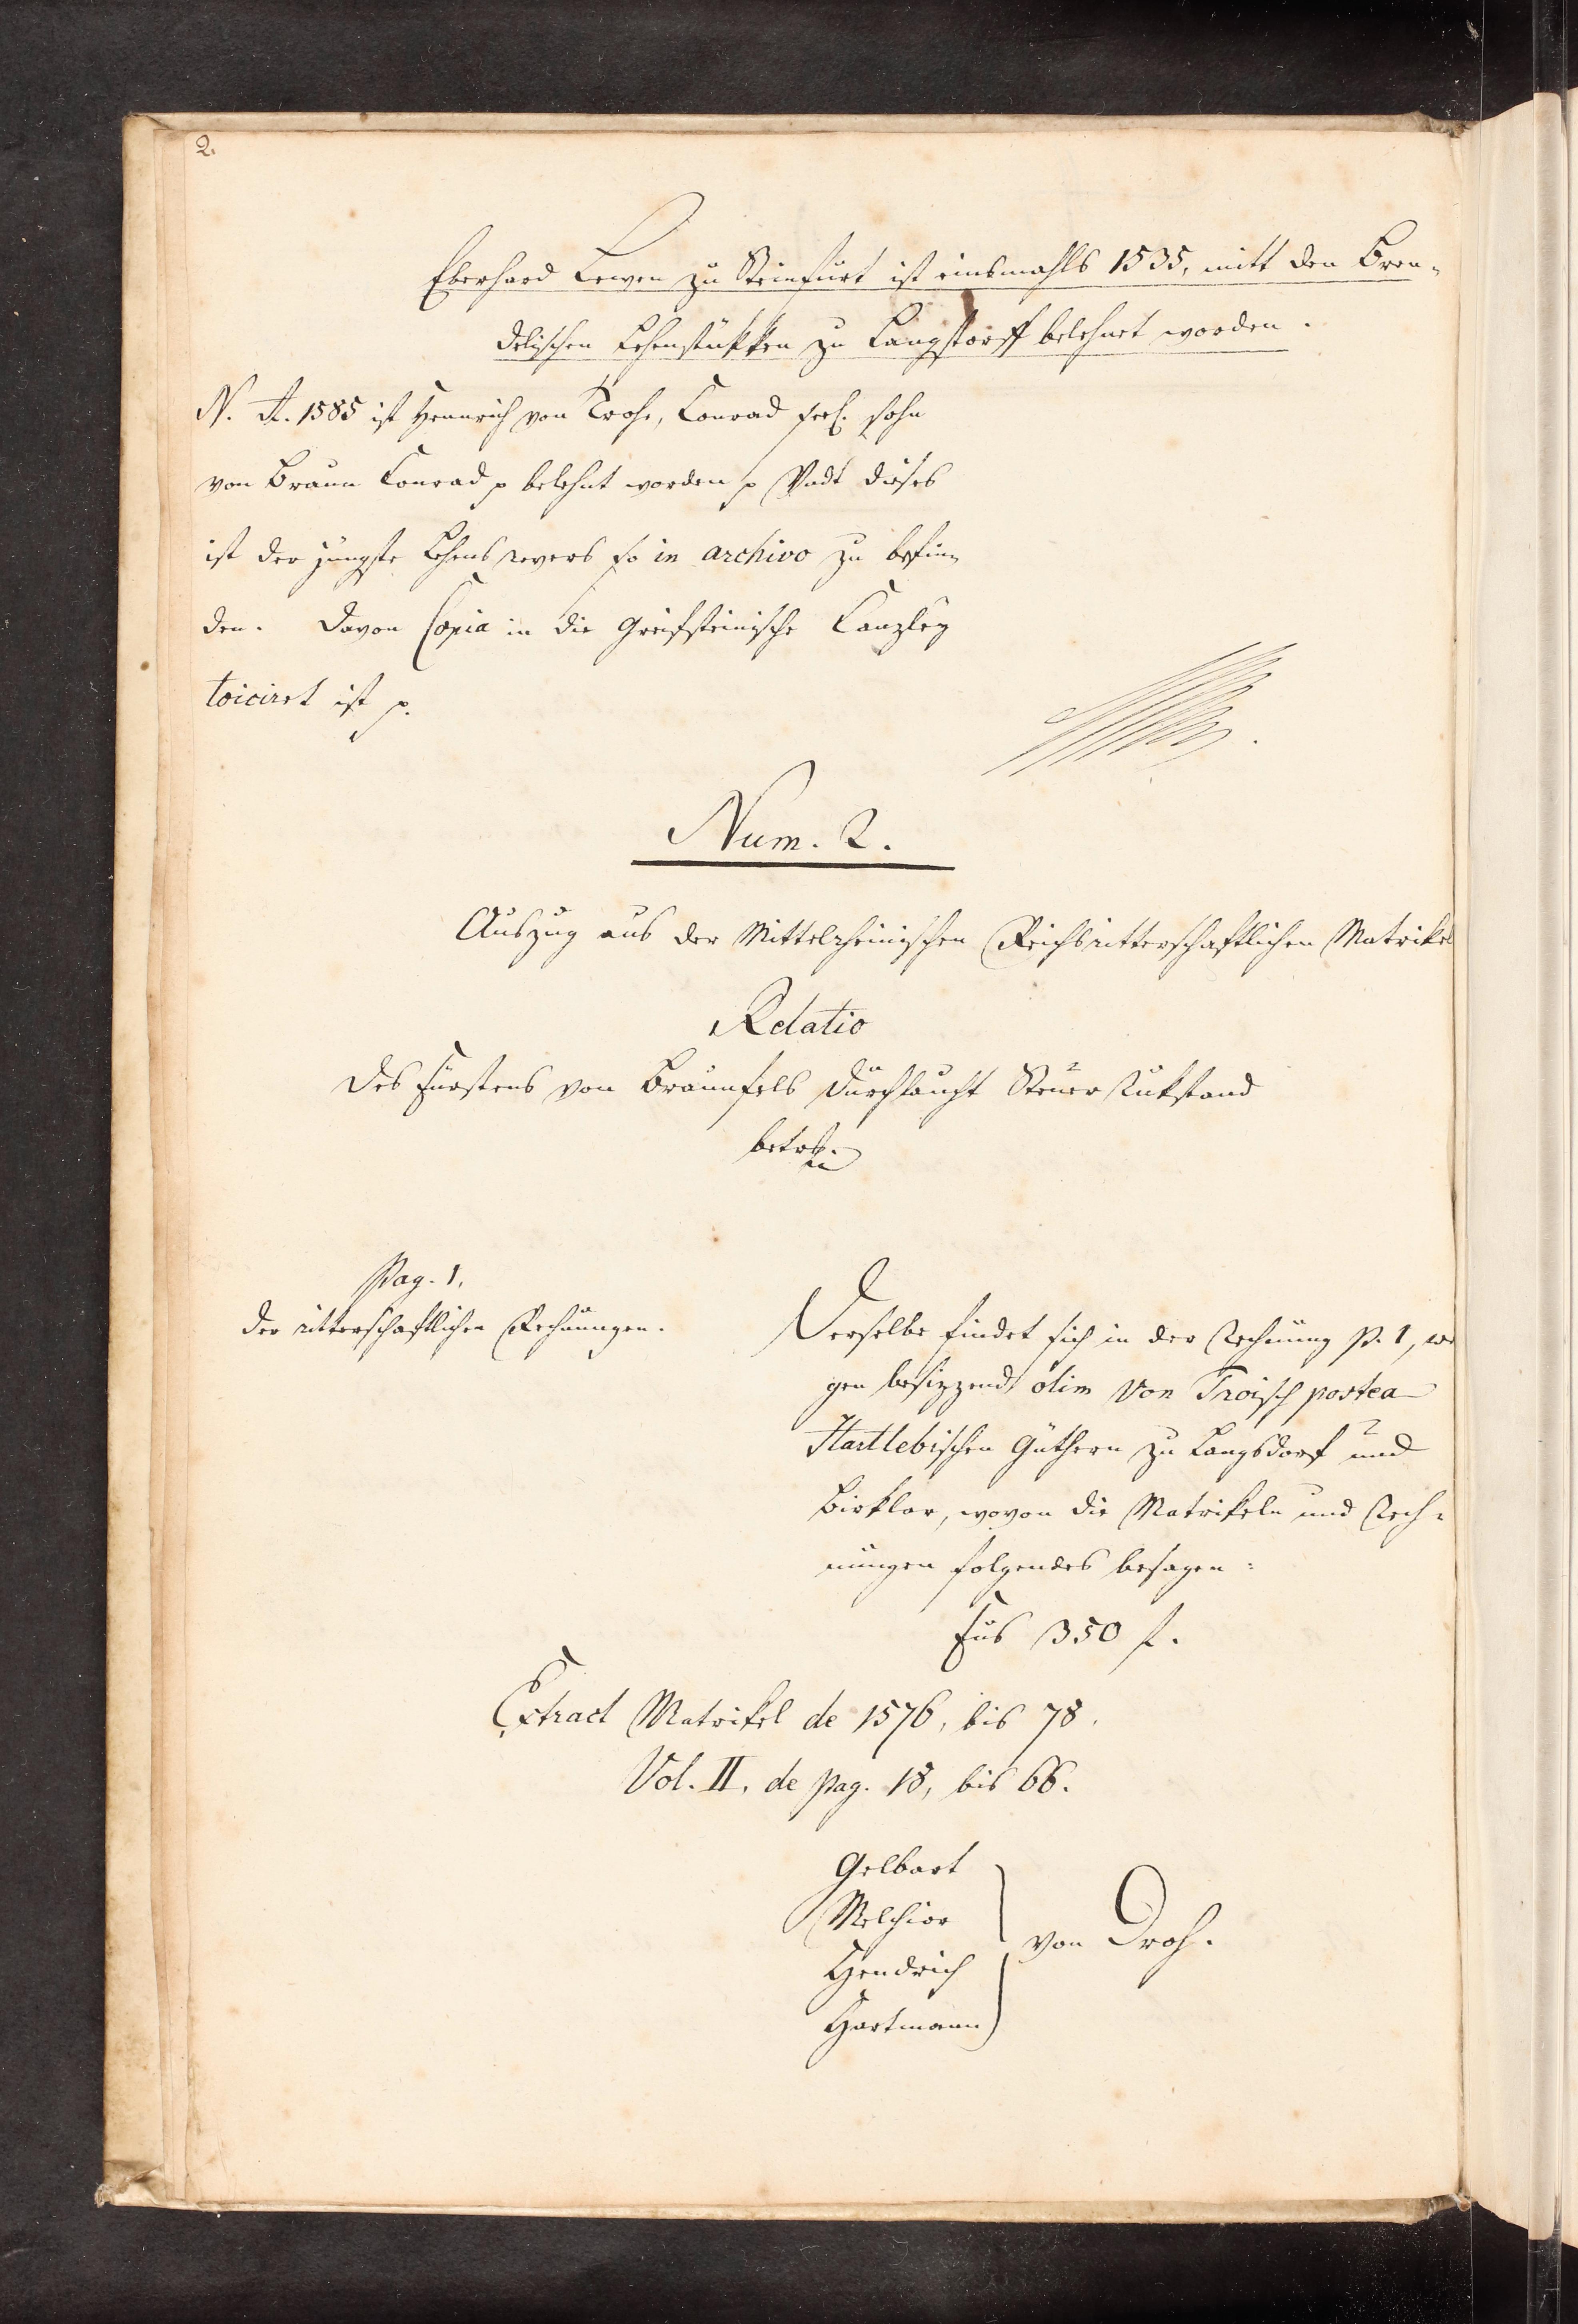 2.
Eberhard Lewen zu Steinfurt ist einsmahls 1535, mitt den Bren-
delischen Lehenstükken zu Langstorff belehnet worden.
N. A. 1585 ist Henrich von Trohe, Conrad seel. sohn
von Braun Conrad p belehnt worden p Undt dieses
ist der jüngste Lehens revers so in archivo zu befin-
den. Davon Copia in die Greifsteinische Canzley
ist p.
Num. 2.
Auszug aus der Mittelrheinischen Reichsritterschaftlichen Matrikel
Relatio
Des Fürstens von Braunfels Durchlaucht Steuer Rükstand
betref.
Pag. 1.
der ritterschaftlichen Rechnungen.
Derselbe findet sich in der Rechnung P. 1, we
gen besizzend olim von Troisch postea
Hartlebischen Güthern zu Langsdorf und
Birklar, wovon die Matrikeln und Rech-
nungen folgendes besagen:
Fus 350 f.
Extract Matrikel de 1576, bis 78.
Vol. II. de pag. 18, bis 66.
Gelbart
Melchior
Hendrich
Hartmann
von Droh.